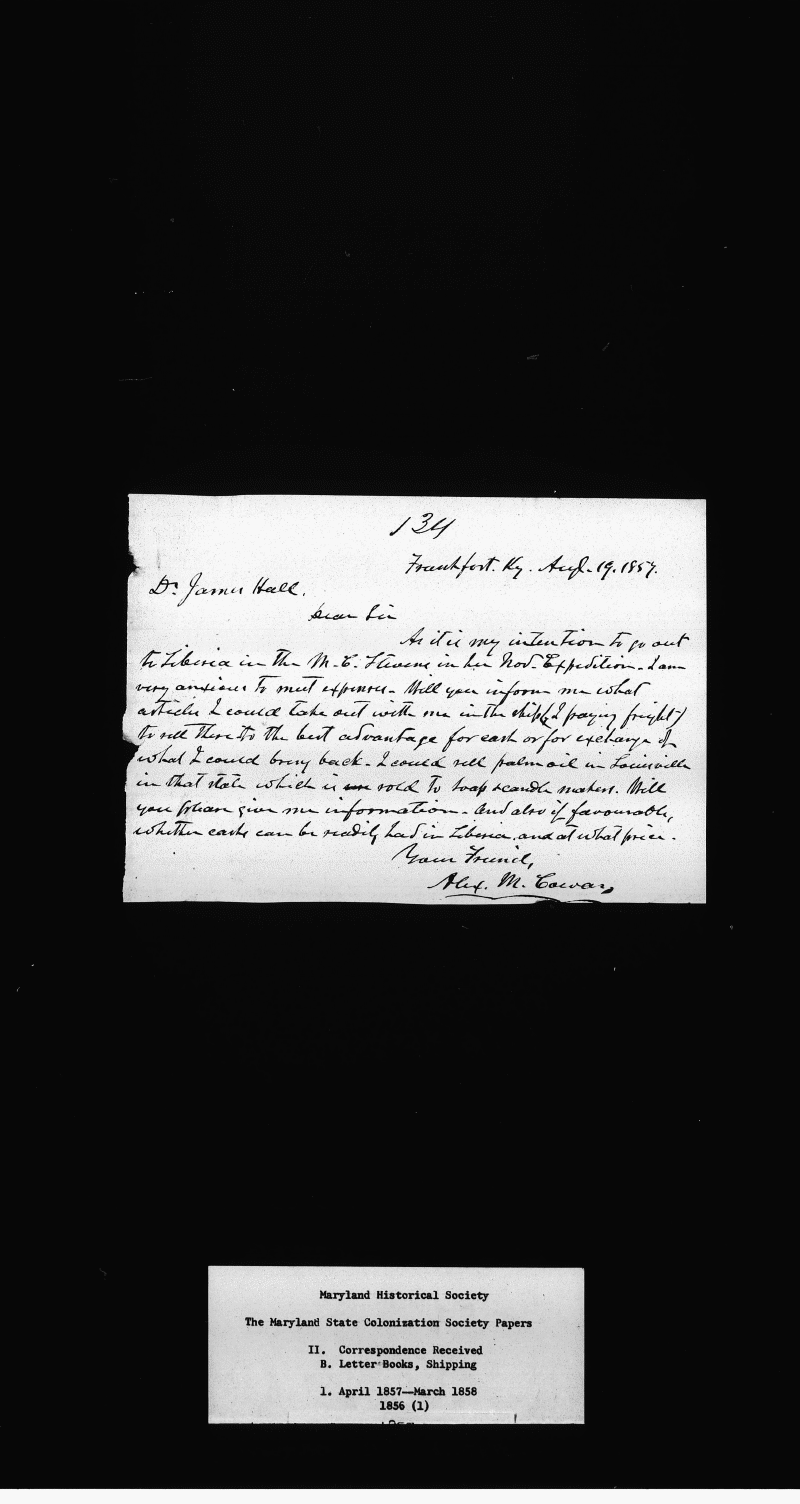 134
Frankfort. Ky. Aug. 19. 1857.
Dr. James Hall.
Dear Sir
As it is my intention to go out
to Liberia in the M. C. Stevens in her Nov. Expedition. I am
very anxious to meet expenses. Will you inform me what
articles I could take out with me in the ship (I paying freight)
to sell there to the best advantage for cash or for exchange of
what I could bring back. I could sell palm oil in Louisville
in that state which is sold to soap & candle makers. Will
you please give me information. And also if favourable,
whether casks can be readily had in Liberia, and at what price.
Your Friend,
Alex. M. Cowan
Maryland Historical Society
The Maryland State Colonization Society Papers
II. Correspondence Received
B. Letter Books, Shipping
1. April 1857—March 1858
1856 (1)